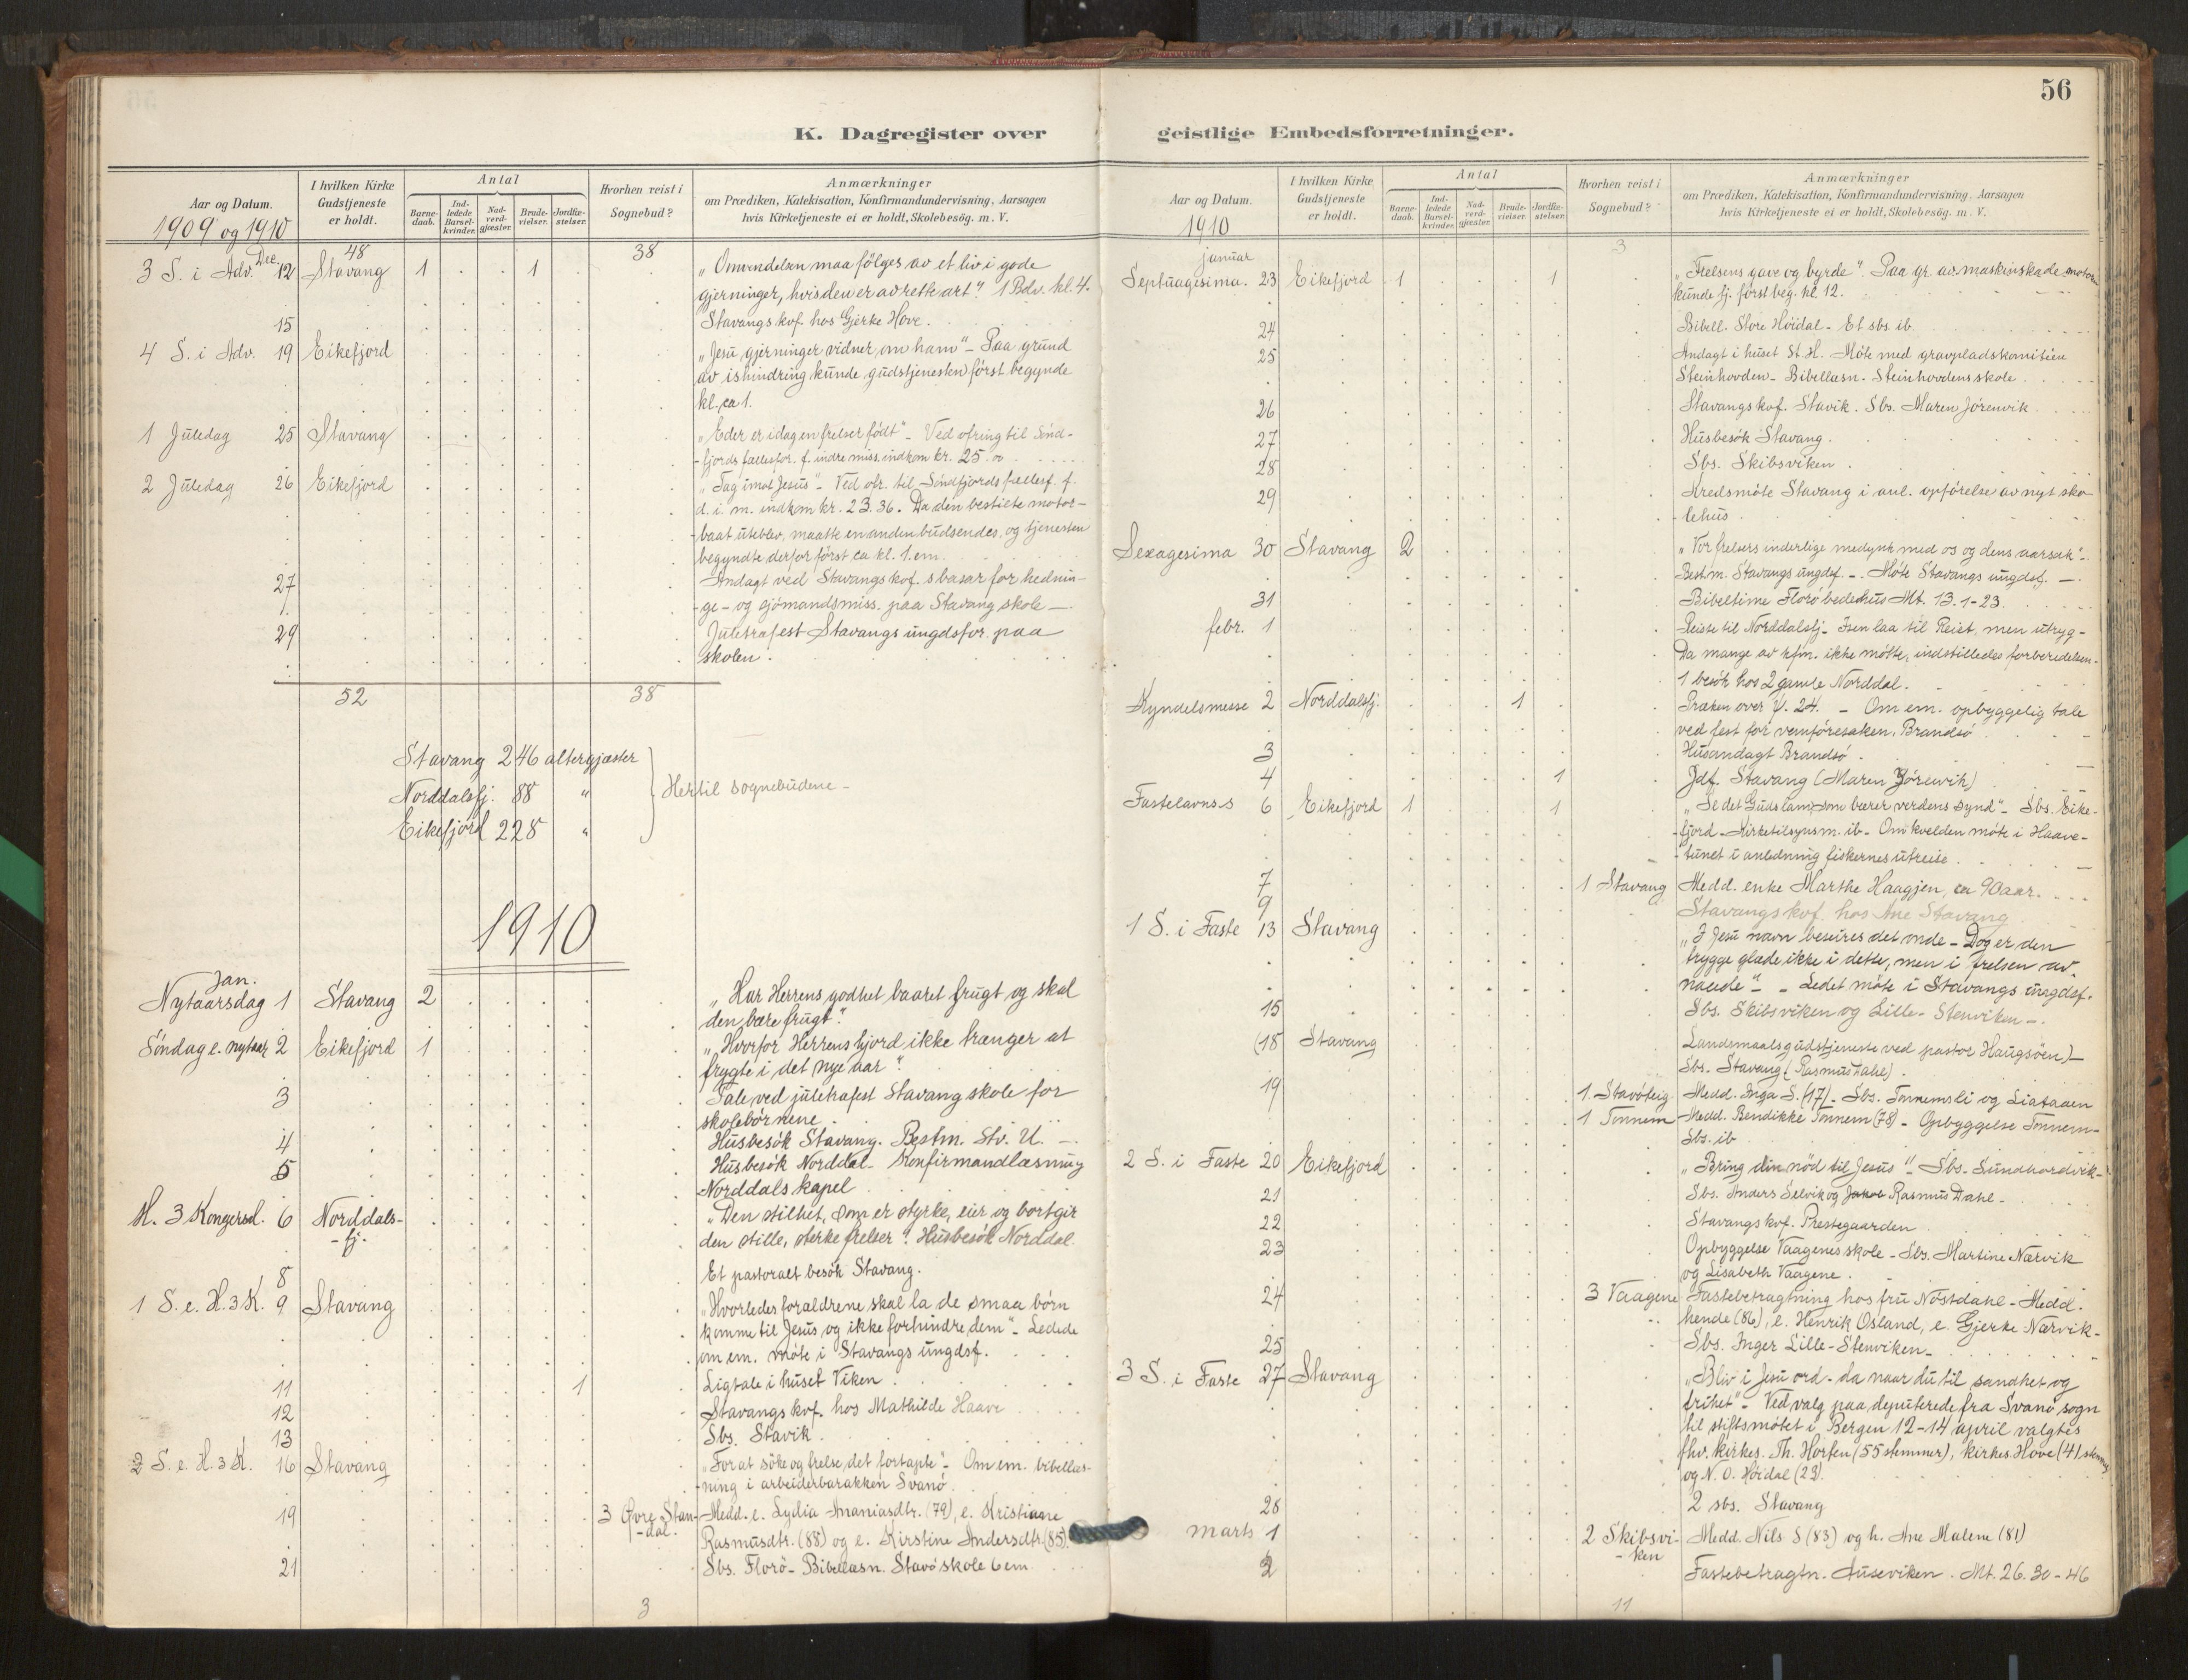 56
K. Dagregister over geistlige Embedsforretninger.
Aar og Datum.
1909 og 1910
I hvilken Kirke Gudstjeneste er holdt.
Antal
Barnedaab.
Indledede Barselkvinder.
Nadverdgjæster.
Brudevielser.
Jordfæstelser.
Hvorhen reist i Sognebud?
Anmærkninger
om Prædiken, Katekisation, Konfirmandundervisning, Aarsagen
hvis Kirketjeneste ei er holdt, Skolebesög. m. V.
48 38
3 S. i Adv. Dec. 12 Stavang 1 1 „Omvendelsen maa følges av et liv i gode
gjerninger, hvis den er av rette art". 1 Bdv. kl. 4.
15 Stavangs kvf. hos Gjerke Hove.
4 S. i Adv. 19 Eikefjord „Jesu gjerninger vidner om ham" - Paa grund
av ishindring kunde gudstjenesten først begynde
kl. ca 1.
1 Juledag 25 Stavang „Eder er idag en frelser født" - Ved ofring til Sönd-
-fjords fællesfor. f. indre miss. indkom kr. 25.00
2 Juledag 26 Eikefjord „Tag imot Jesus" - Ved ofr. til Söndfjords fællesf. f.
d. i. m. indkom kr. 23.36. Da den bestilte motor-
-baat uteblev, maatte en anden budsendes, og tjenesten
begyndte derfor først ca kl. 1. em.
27 Andagt ved Stavangs kvf.s basar for hednin-
-ge- og sjömandsmiss. paa Stavang skole -
29 Juletræfest Stavangs ungdsfor. paa
skolen.
52 38
Stavang 246 altergjæster
Norddalsfj. 88 "
Eikefjord 228 "
Hertil sognebudene -
1910
Jan.
Nytaarsdag 1 Stavang 2 „Har Herrens godhet baaret frugt og skal
den bære frugt".
Söndag e. nytaar 2 Eikefjord 1 „Hvorfor Herrens hjord ikke trænger at
frygte i det nye aar".
3 Tale ved juletræfest Stavang skole for
skolebørnene.
4 Husbesök Stavang. Bestm. Stv. U. -
5 Husbesök Norddal - Konfirmandlæsning
Norddals kapel
H. 3 Kongersd. 6 Norddals-
-fj. „Den stilhet, som er styrke, eier og bortgir
den stille, sterke frelser". Husbesök Norddal.
8 Et pastoralt besök Stavang.
1 S. e. H. 3 K. 9 Stavang „Hvorledes foraldrene skal la de smaa börn
komme til Jesus og ikke forhindre dem" - Ledede
om em. möte i Stavangs ungdsf.
11 1 Ligtale i huset Viken
12 Stavangs kvf. hos Mathilde Haave
13 Sbs. Stavik.
2 S. e. H. 3 K. 16 Stavang „For at söke og frelse det fortapte" - Om em. bibellæs-
-ning i arbeiderbarakken Svanö.
19 3 Øvre Stan-
-dal. Medd. e. Lydia Ananiasdtr. (79), e. Kristiane
Rasmusdtr. (88) og e. Kirstine Andersdtr. (85).
21 Sbs. Florö - Bibellæsn. Stavö skole 6 em
3
Aar og Datum.
1910
I hvilken Kirke Gudstjeneste er holdt.
Antal
Barnedaab.
Indledede Barselkvinder.
Nadverdgjæster.
Brudevielser.
Jordfæstelser.
Hvorhen reist i Sognebud?
Anmærkninger
om Prædiken, Katekisation, Konfirmandundervisning, Aarsagen
hvis Kirketjeneste ei er holdt, Skolebesög. m. V.
3
januar
Septuagesima. 23 Eikefjord 1 1 „Frelsens gave og byrde". Paa gr. av maskinskade motor
kunde tj. først beg. kl. 12.
24 Bibell. Store Höidal - Et sbs. ib.
25 Andagt i huset St. H. Möte med gravpladskomitéen
Steinhovden - Bibellæsn. Steinhovdens skole
26 Stavangs kvf. Stavik. Sbs. Maren Jörenvik
27 Husbesök Stavang.
28 Sbs. Skibsviken.
29 Kredsmöte Stavang i anl. opförelse av nyt sko-
-lehus.
Sexagesima 30 Stavang 2 „Vor frelsers inderlige medynk med os og dens aarsak" -
Bestm. Stavangs ungdsf. - Möte Stavangs ungdsf. -
31 Bibeltime Florö bedehus Mt. 13.1-23.
febr. 1 Reiste til Norddalsfj. - Isen laa til Reiet, men utryg -
Da mange av kfm. ikke mötte, indstilledes forberedelsen.
1 besök hos 2 gamle Norddal.
Kyndelsmesse 2 Norddalsfj. 1 Præken over V. 24. - Om em. opbyggelig tale
ved fest for vanföresaken, Brandsö
3 Husandagt Brandsö.
4 1 Jdf. Stavang (Maren Jörenvik)
Fastelavns s 6 Eikefjord 1 1 „Se det Guds lam, som bærer verdens synd" - Sbs. Eike-
-fjord - Kirketilsynsm. ib - Om kvelden möte i Haave-
-tunet i anledning fiskernes utreise.
7 1 Stavang Medd. enke Marthe Haagjen, ca 90 aar.
9 Stavangs kvf. hos Ane Stavang
1 S. i Faste 13 Stavang „I Jesu navn beseires det onde - Dog er den
trygge glæde ikke i dette, men i frelsen av
naade" - - Ledet möte i Stavangs ungdsf.
15 Sbs. Skibsviken og Lille-Stenviken -
(18 Stavang Landsmaalsgudstjeneste ved pastor Haugsöen) -
Sbs. Stavang (Rasmus Dahl).
19 1. Stavöteig Medd. Inga S. (17) - Sbs. Tonnemsli og Liatræen
1 Tonnem Medd. Bendikke Tonnem (78) - Opbyggelse Tonnem -
Sbs. ib
2 S. i Faste 20 Eikefjord „Bring din nöd til Jesus" - Sbs. Sundhordvik -
21 Sbs. Anders Selvik og Jakob Rasmus Dahl -
22 Stavangs kvf. Prestegaarden
23 Opbyggelse Vaagenes skole - Sbs. Martine Nærvik
og Lisabeth Vaagene.
24 3 Vaagene Fastebetragtning hos fru Nöstdahl - Medd.
hende (86), e. Henrik Osland, e. Gjerke Nærvik -
25 Sbs. Inger Lille-Stenviken -
3 S. i Faste 27 Stavang „Bliv i Jesu ord - da naar du til sandhet og
frihet" - Ved valg paa deputerede fra Svanö sogn
til stiftsmötet i Bergen 12-14 april valgtes
fhv. kirkes. Th. Horten (55 stemmer), kirkes. Hove (41 stemmer)
og N. O. Höidal (23).
28 2 sbs. Stavang
marts 1 2 Skibsvi-
-ken Medd. Nils S (83) og h. Ane Malene (81)
2 Fastebetragtn. Auseviken. Mt. 26.30-46
11